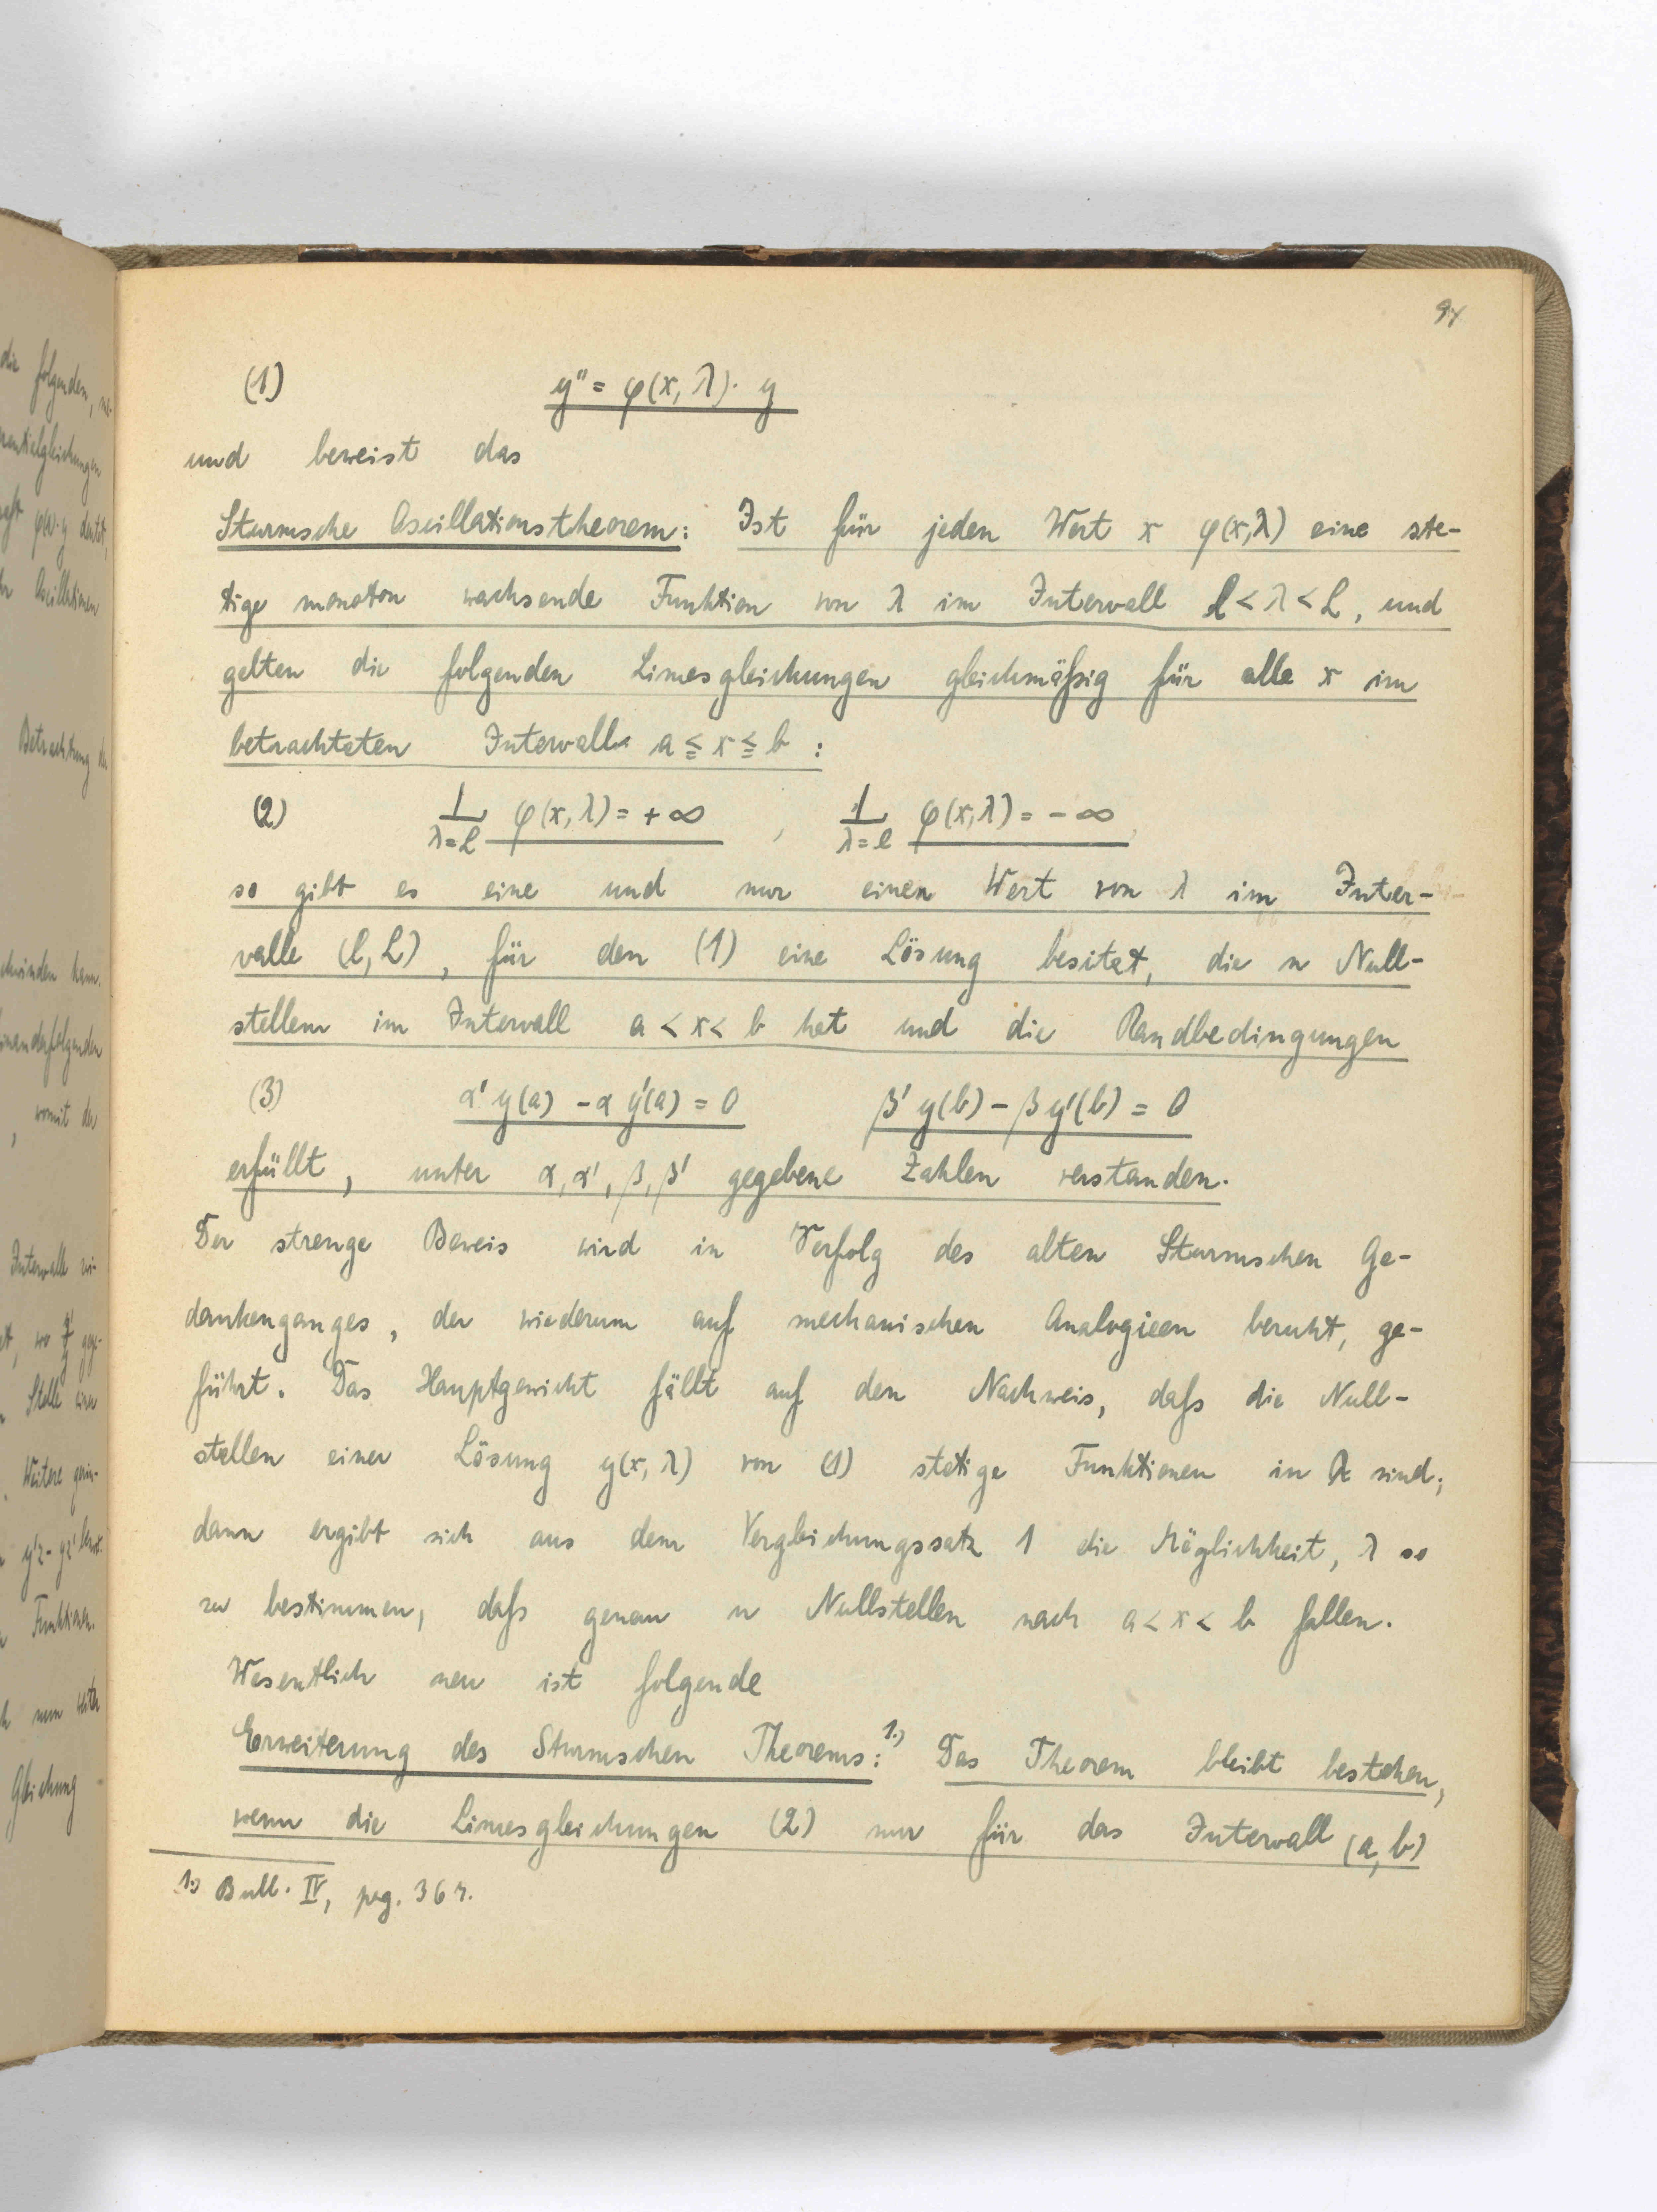 die folgenden,
entialgleichungen
φ(x)·y deutet,
Oscillationen
Betrachtung der
schwinden kann.
einanderfolgenden
, womit der
Intervalle
Stelle einer
Weitere
y'z - yz'
Funktionen.
nun weiter
Gleichung
(1) y'' = φ(x, λ)· y
und beweist das
Sturmsche Oscillationstheorem: Ist für jeden Wert x φ(x,λ) eine ste-
tige monoton wachsende Funktion von λ im Intervall l < λ < L, und
gelten die folgenden Limesgleichungen gleichmäßig für alle x im
betrachteten Intervalle a ≦ x ≦ b :
(2) L λ=L φ(x,λ) = + ∞ , L λ=l φ(x,λ) = - ∞
so gibt es eine und nur einen Wert von λ im Inter-
valle (l, L), für den (1) eine Lösung besitzt, die n Null-
stellen im Intervall a < x < b hat und die Randbedingungen
(3) α' y(a) - α y'(a) = 0 β' y(b) - β y'(b) = 0
erfüllt, unter α, α', β, β' gegebene Zahlen verstanden.
Der strenge Beweis wird in Verfolg des alten Sturmschen Ge-
dankenganges, der wiederum auf mechanischen Analogieen beruht, ge-
führt. Das Hauptgewicht fällt auf den Nachweis, daß die Null-
stellen einer Lösung y(x, λ) von (1) stetige Funktionen in λ sind;
dann ergibt sich aus dem Vergleichungssatz 1 die Möglichkeit, λ so
zu bestimmen, daß genau n Nullstellen nach a < x < b fallen.
Wesentlich neu ist folgende
Erweiterung des Sturmschen Theorems:¹⁾ Das Theorem bleibt bestehen,
wenn die Limesgleichungen (2) nur für das Intervall (a, b)
1.) Bull. IV, pag. 367.